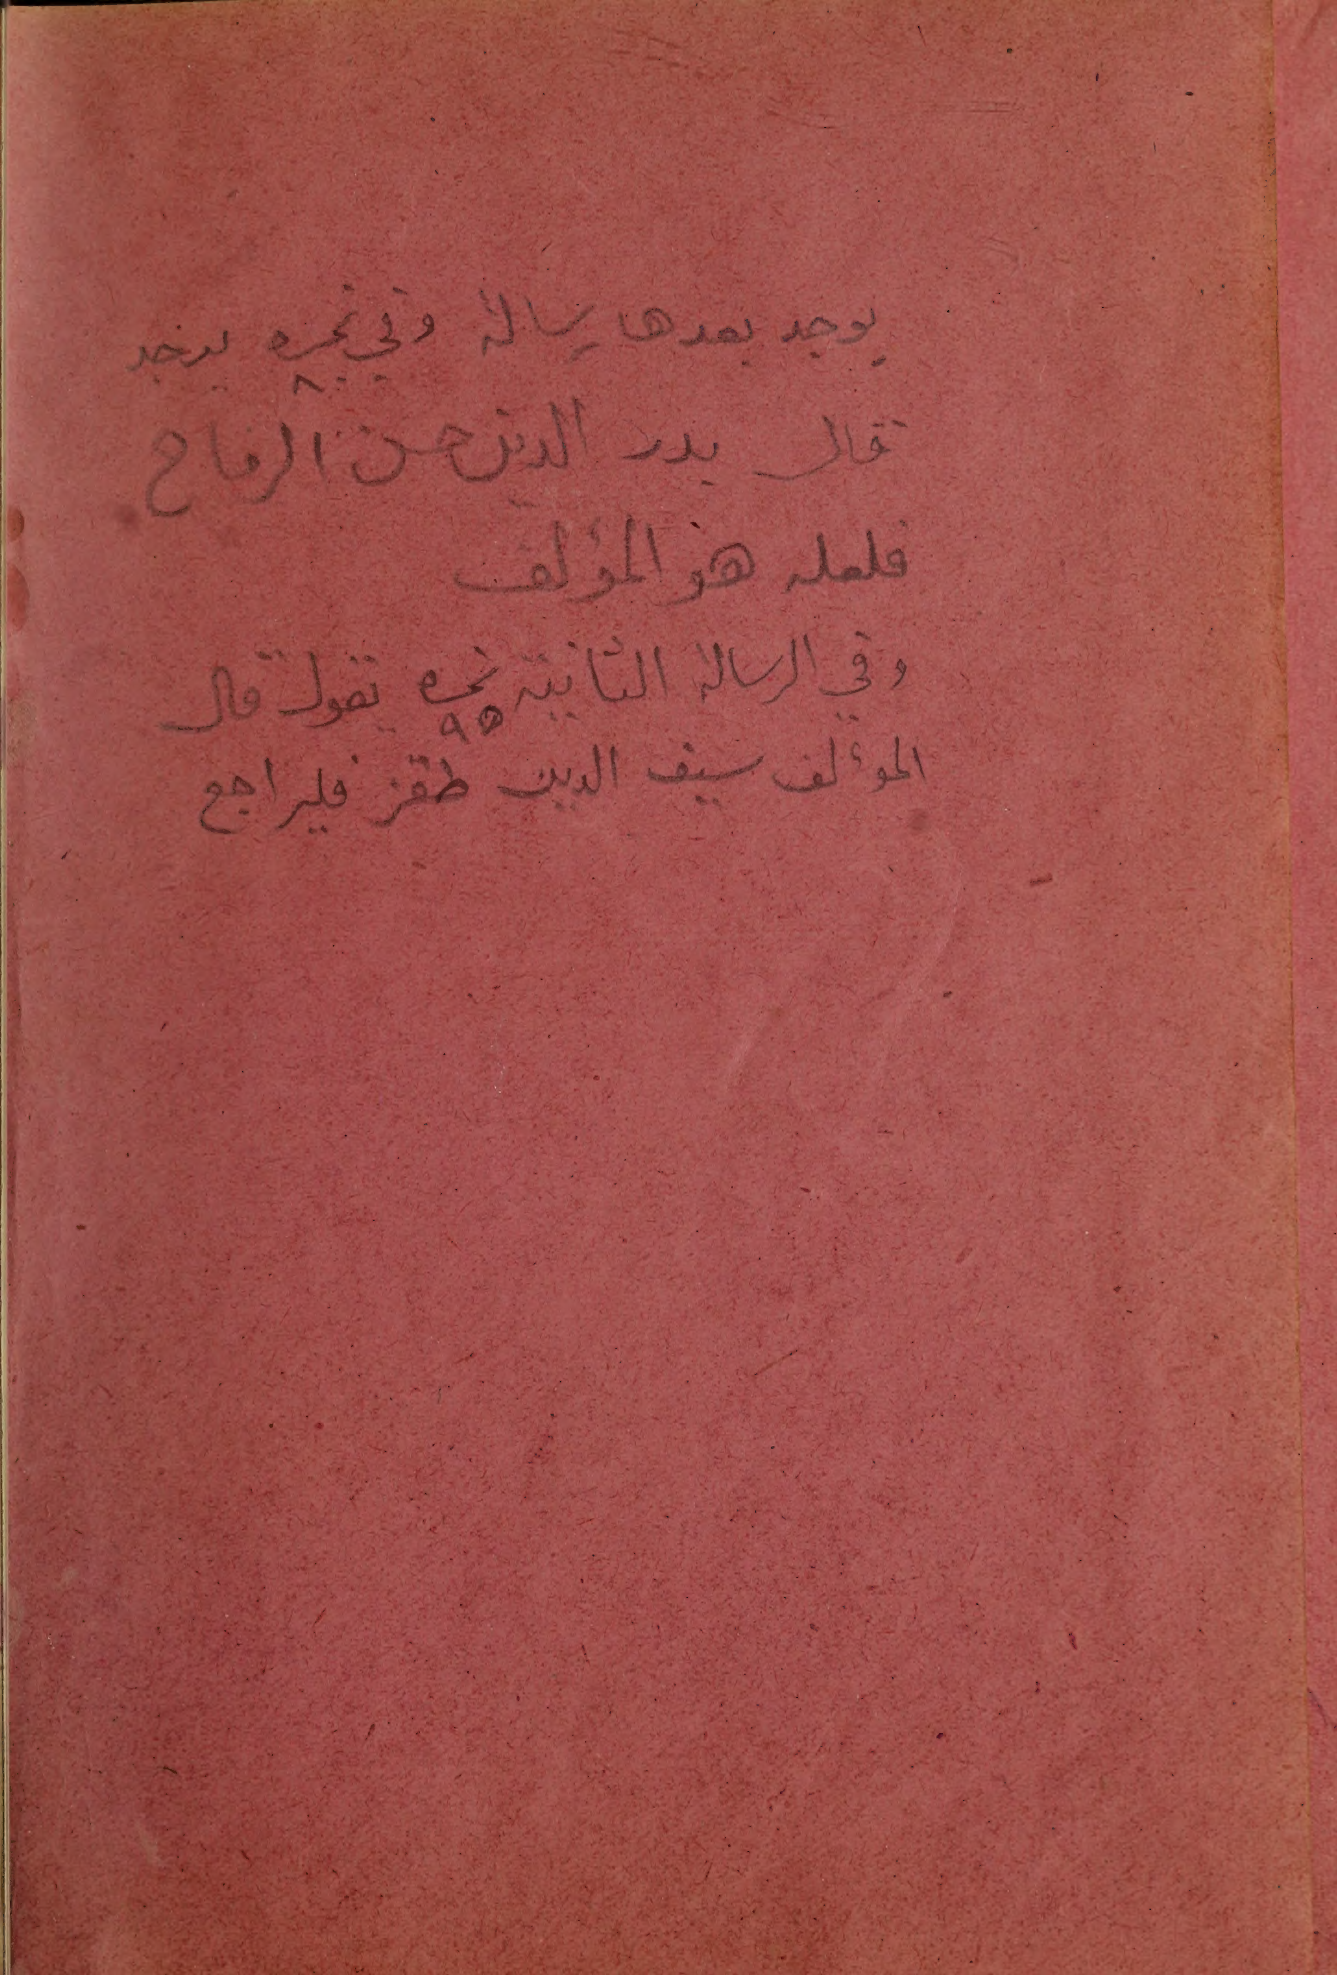 يوجد بعدها رسالة وفي نمره ٨٠ يوجد
قال بدر الدين حسن الرماح
فلعله هو المؤلف
وفي الرسالة الثانية نمره ٩٥ تقول قال
المؤلف سيف الدين طقز فليراجع